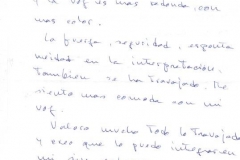 y la voz es mas redonda, con
mas color.
La fuerza, seguridad, esponta
neidad en la interpretación.
Tambien se ha trabajado. Me
siento mas comoda con mi
voz.
Valoro mucho todo lo trabajado
y creo que lo puedo integrar en
mi